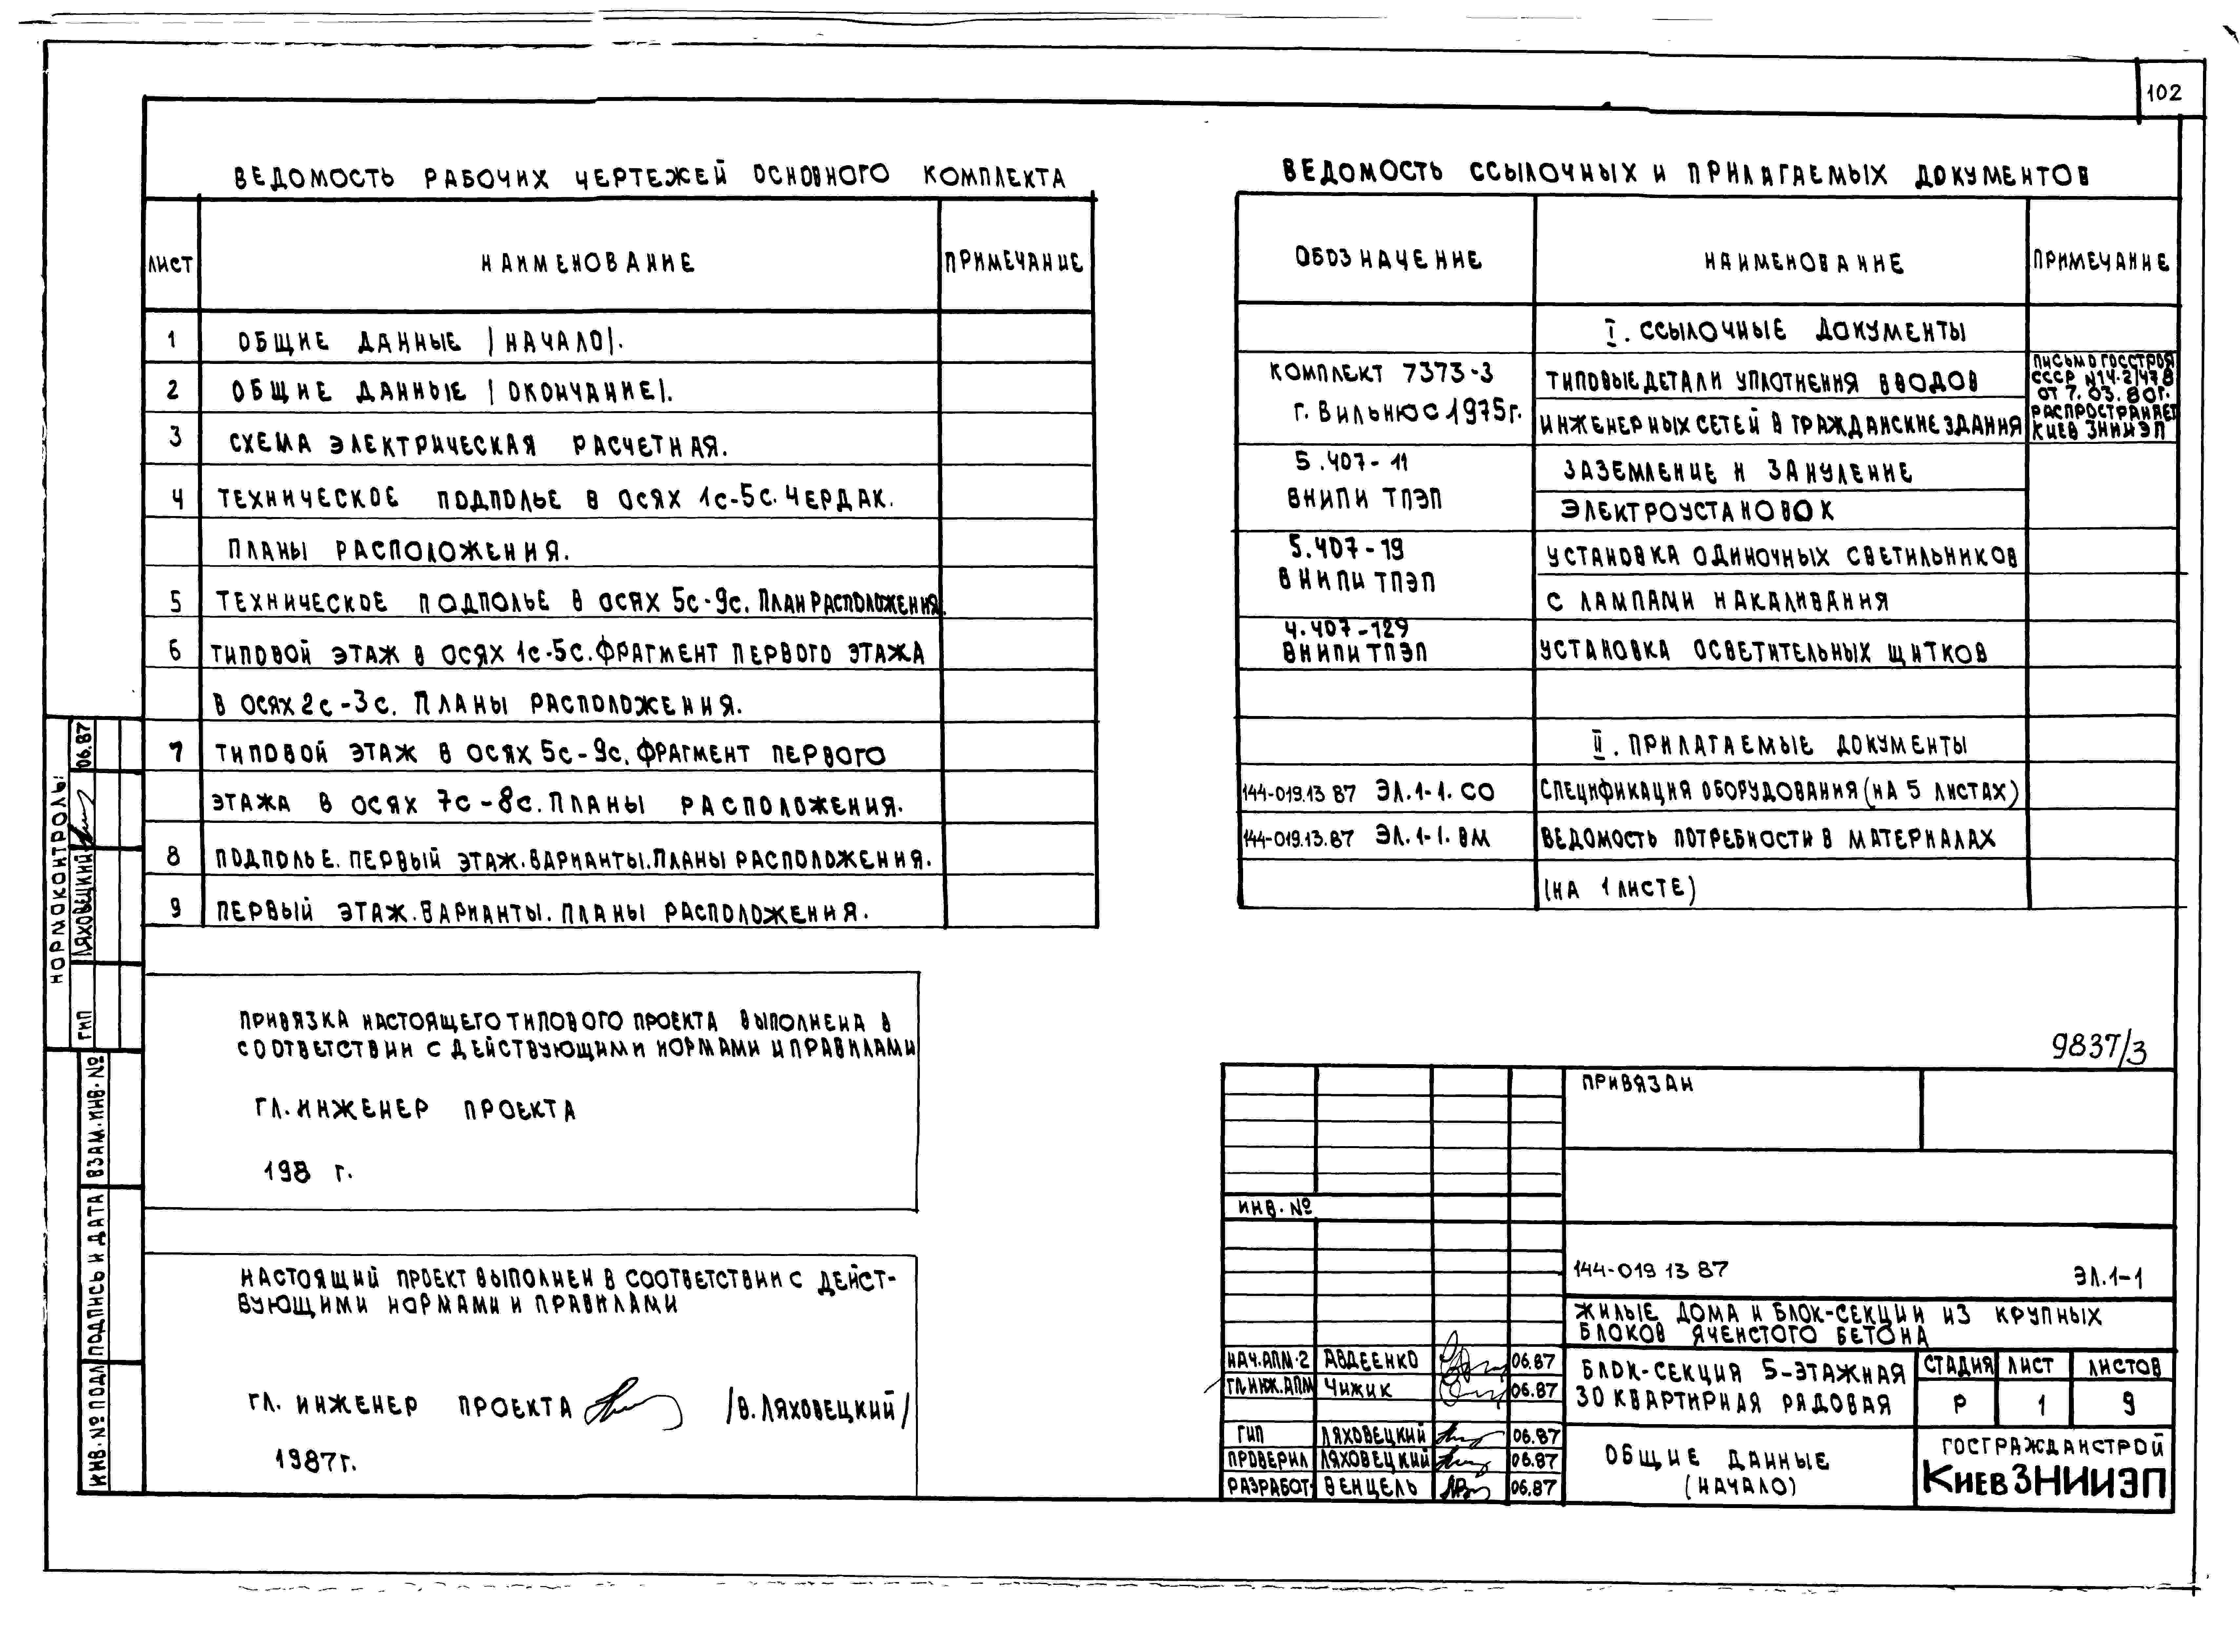 102
ВЕДОМОСТЬ РАБОЧИХ ЧЕРТЕЖЕЙ ОСНОВНОГО КОМПЛЕКТА
ЛИСТ НАИМЕНОВАНИЕ ПРИМЕЧАНИЕ
1 ОБЩИЕ ДАННЫЕ /НАЧАЛО/.
2 ОБЩИЕ ДАННЫЕ /ОКОНЧАНИЕ/.
3 СХЕМА ЭЛЕКТРИЧЕСКАЯ РАСЧЕТНАЯ.
4 ТЕХНИЧЕСКОЕ ПОДПОЛЬЕ В ОСЯХ 1с-5с. ЧЕРДАК.
ПЛАНЫ РАСПОЛОЖЕНИЯ.
5 ТЕХНИЧЕСКОЕ ПОДПОЛЬЕ В ОСЯХ 5с-9с. ПЛАН РАСПОЛОЖЕНИЯ.
6 ТИПОВОЙ ЭТАЖ В ОСЯХ 1с-5с. ФРАГМЕНТ ПЕРВОГО ЭТАЖА
В ОСЯХ 2с-3с. ПЛАНЫ РАСПОЛОЖЕНИЯ.
7 ТИПОВОЙ ЭТАЖ В ОСЯХ 5с-9с. ФРАГМЕНТ ПЕРВОГО
ЭТАЖА В ОСЯХ 7с-8с. ПЛАНЫ РАСПОЛОЖЕНИЯ.
8 ПОДПОЛЬЕ. ПЕРВЫЙ ЭТАЖ. ВАРИАНТЫ. ПЛАНЫ РАСПОЛОЖЕНИЯ.
9 ПЕРВЫЙ ЭТАЖ. ВАРИАНТЫ. ПЛАНЫ РАСПОЛОЖЕНИЯ.
ВЕДОМОСТЬ ССЫЛОЧНЫХ И ПРИЛАГАЕМЫХ ДОКУМЕНТОВ
ОБОЗНАЧЕНИЕ НАИМЕНОВАНИЕ ПРИМЕЧАНИЕ
I. ССЫЛОЧНЫЕ ДОКУМЕНТЫ
КОМПЛЕКТ 7373-3
г. Вильнюс 1975г.
ТИПОВЫЕ ДЕТАЛИ УПЛОТНЕНИЯ ВВОДОВ
ИНЖЕНЕРНЫХ СЕТЕЙ В ГРАЖДАНСКИЕ ЗДАНИЯ
ПИСЬМО ГОССТРОЯ
СССР №14-2/478
ОТ 7.03.80г.
РАСПРОСТРАНЯЕТ
КИЕВ ЗНИИЭП
5.407-11
ВНИПИ ТПЭП
ЗАЗЕМЛЕНИЕ И ЗАНУЛЕНИЕ
ЭЛЕКТРОУСТАНОВОК
5.407-19
ВНИПИ ТПЭП
УСТАНОВКА ОДИНОЧНЫХ СВЕТИЛЬНИКОВ
С ЛАМПАМИ НАКАЛИВАНИЯ
4.407-129
ВНИПИ ТПЭП
УСТАНОВКА ОСВЕТИТЕЛЬНЫХ ЩИТКОВ
II. ПРИЛАГАЕМЫЕ ДОКУМЕНТЫ
144-019.13 87 ЭЛ.1-1. СО СПЕЦИФИКАЦИЯ ОБОРУДОВАНИЯ (НА 5 ЛИСТАХ)
144-019.13.87 ЭЛ.1-1. ВМ ВЕДОМОСТЬ ПОТРЕБНОСТИ В МАТЕРИАЛАХ
(НА 1 ЛИСТЕ)
НОРМОКОНТРОЛЬ:
ГИП ЛЯХОВЕЦКИЙ 06.87
ВЗАМ. ИНВ. №
ПОДПИСЬ И ДАТА
ИНВ. № ПОДЛ
ПРИВЯЗКА НАСТОЯЩЕГО ТИПОВОГО ПРОЕКТА ВЫПОЛНЕНА В
СООТВЕТСТВИИ С ДЕЙСТВУЮЩИМИ НОРМАМИ И ПРАВИЛАМИ
ГЛ. ИНЖЕНЕР ПРОЕКТА
198 г.
НАСТОЯЩИЙ ПРОЕКТ ВЫПОЛНЕН В СООТВЕТСТВИИ С ДЕЙСТ-
ВУЮЩИМИ НОРМАМИ И ПРАВИЛАМИ
ГЛ. ИНЖЕНЕР ПРОЕКТА /В. ЛЯХОВЕЦКИЙ/
1987г.
9837/3
ПРИВЯЗАН
ИНВ. №
144-019 13 87 ЭЛ.1-1
ЖИЛЫЕ ДОМА И БЛОК-СЕКЦИИ ИЗ КРУПНЫХ
БЛОКОВ ЯЧЕИСТОГО БЕТОНА
НАЧ. АПМ-2 АВДЕЕНКО 06.87
ГЛ. ИНЖ. АПМ ЧИЖИК 06.87
ГИП ЛЯХОВЕЦКИЙ 06.87
ПРОВЕРИЛ ЛЯХОВЕЦКИЙ 06.87
РАЗРАБОТ. ВЕНЦЕЛЬ 06.87
БЛОК-СЕКЦИЯ 5-ЭТАЖНАЯ
30 КВАРТИРНАЯ РЯДОВАЯ
СТАДИЯ ЛИСТ ЛИСТОВ
Р 1 9
ОБЩИЕ ДАННЫЕ
(НАЧАЛО)
ГОСГРАЖДАНСТРОЙ
КИЕВЗНИИЭП